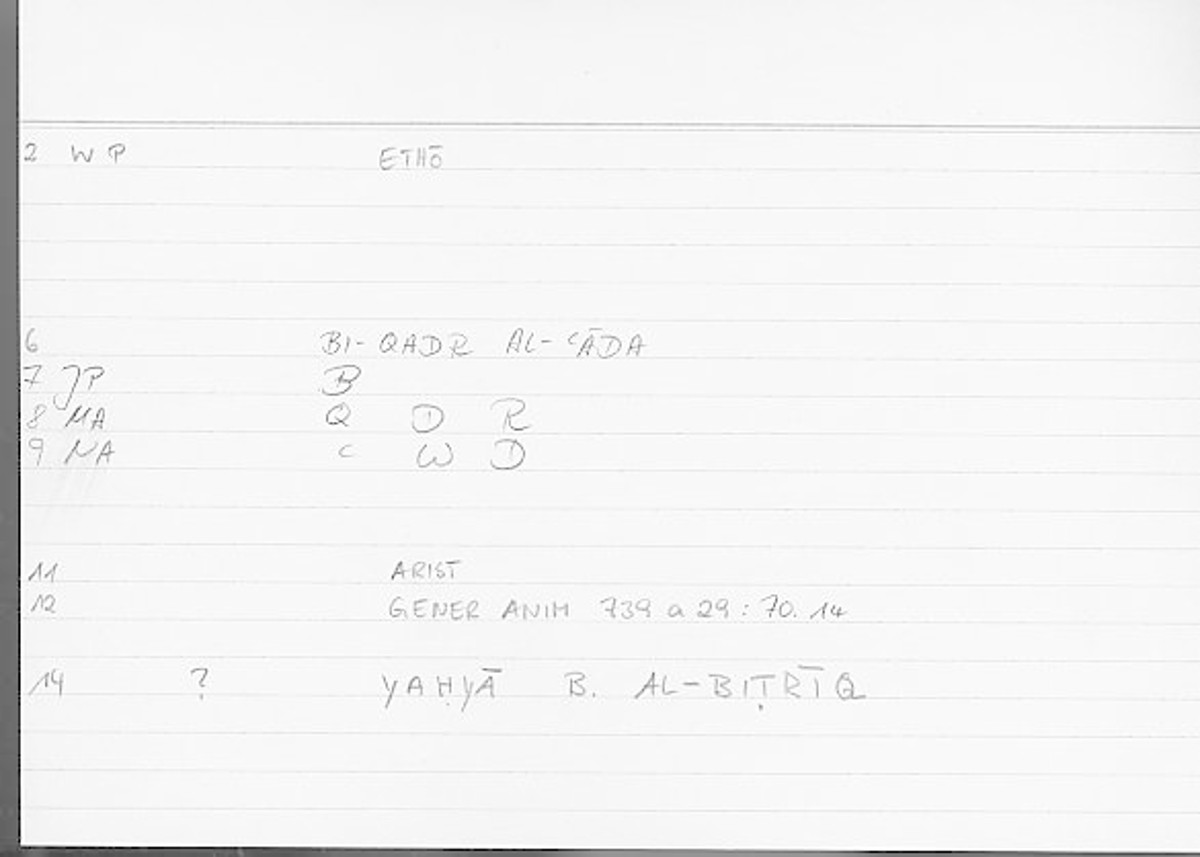 2 WP ETHŌ
6 BI-QADR AL-ʿĀDA
7 JP B
8 MA Q D R
9 NA ʿ W D
11 ARIST
12 GENER ANIM 739 a 29 : 70. 14
14 ? YAḤYĀ B. AL-BIṬRĪQ